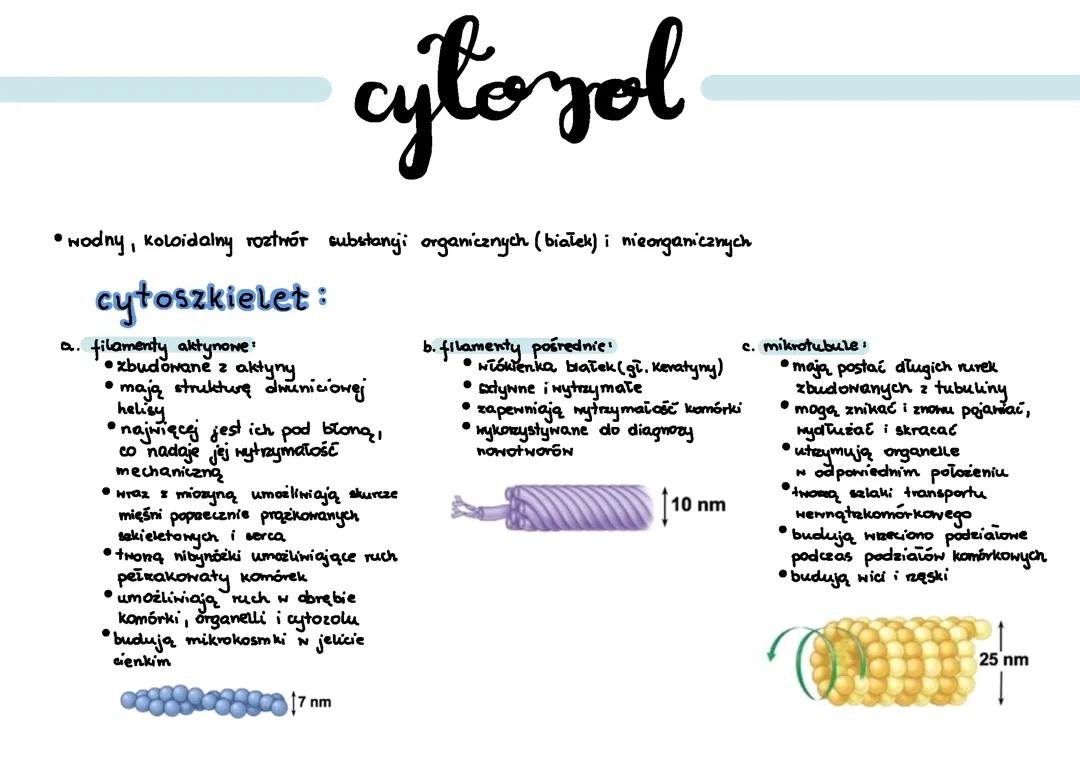 cytozol
• wodny, koloidalny roztwór substancji organicznych (białek) i nieorganicznych
cytoszkielet:
a. filamenty aktynowe:
• zbudowane z aktyny
• mają strukturę dwuniciowej
helisy
• najwięcej jest ich pod błoną,
co nadaje jej wytrzymałość
mechaniczną
• wraz z miozyną umożliwiają skurcze
mięśni poprzecznie prążkowanych
szkieletowych i serca
• tworzą nibynóżki umożliwiające ruch
pełzakowaty komórek
• umożliwiają ruch w obrębie
komórki, organelli i cytozolu
• budują mikrokosmki w jelicie
cienkim
7 nm
b. filamenty pośrednie:
• włókienka białek (gł. keratyny)
• sztywne i wytrzymałe
• zapewniają wytrzymałość komórki
• wykorzystywane do diagnozy
nowotworów
10 nm
c. mikrotubule:
• mają postać długich rurek
zbudowanych z tubuliny
• mogą znikać i znowu pojawiać,
wydłużać i skracać
• utrzymują organelle
w odpowiednim położeniu
• tworzą szlaki transportu
wewnątrzkomórkowego
• budują wrzeciono podziałowe
podczas podziałów komórkowych
• budują wici i rzęski
25 nm